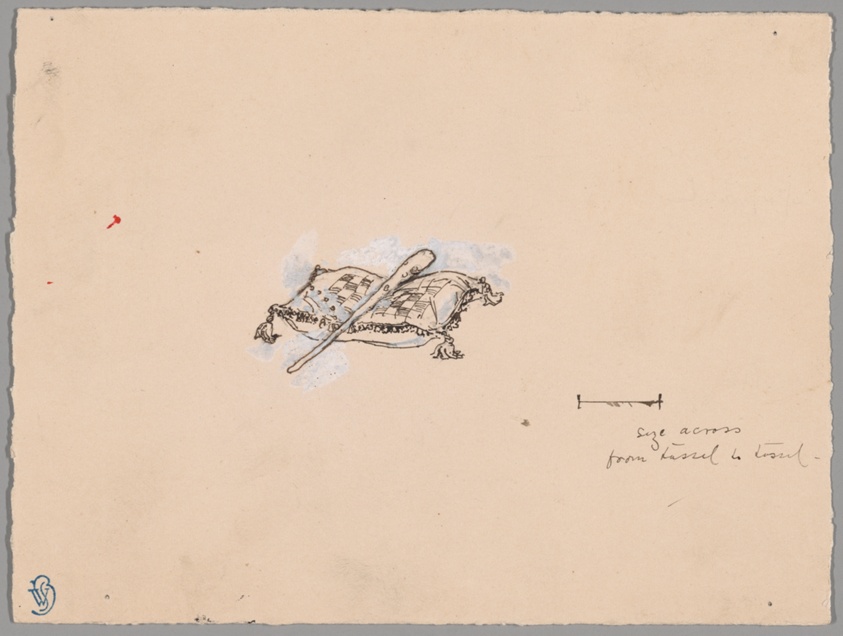 size across
from tassel to tassel -